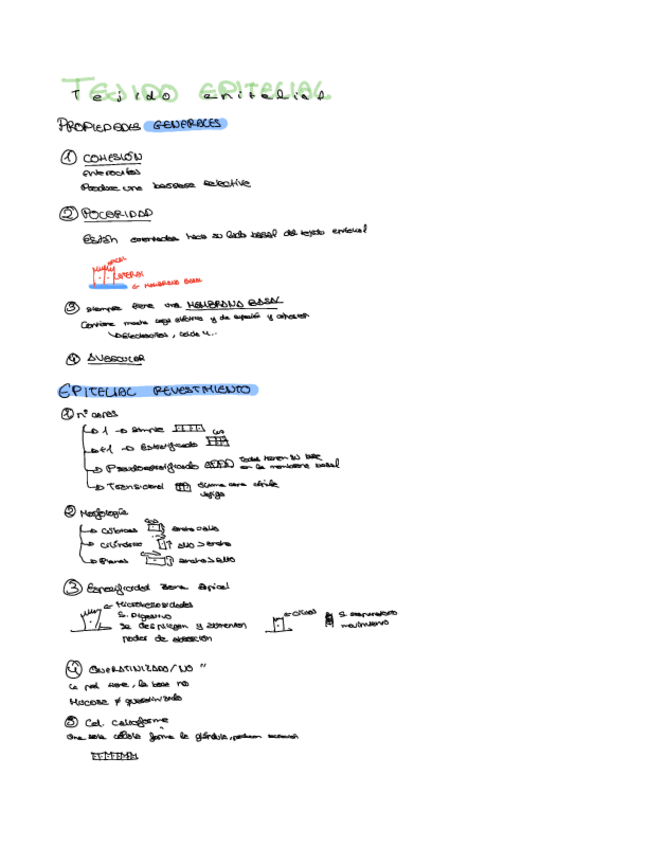 TEJIDO EPITELIAL
Tejido epitelial
PROPIEDADES GENERALES
① COHESIÓN
enterocitos
Produce una barrera selectiva
② POLARIDAD
Están orientadas hacia su lado basal del tejido epitelial
APICAL
LATERAL
← MEMBRANA BASAL
③ siempre tiene una MEMBRANA BASAL
Contiene mucha carga eléctrica y de expansión y cohesión
④ AVASCULAR
EPITELIAL REVESTIMIENTO
① nº capas
→ 1 → simple
→ +1 → Estratificado
→ Pseudoestratificado todas tienen su base
en la membrana basal
→ Transicional última capa
vejiga
② Morfología
→ Cúbicas ancho=alto
→ Cilíndrico alto > ancho
→ Planas ancho > alto
③ Especificidad zona apical
← Microvellosidades
S. Digestivo
Se despliegan y aumentan
poder de absorción
← Cilios
S. respiratorio
movimiento
④ QUERATINIZADO / NO "
La piel tiene, la boca no
Mucosa ≠ queratinizado
⑤ Cel. Caliciforme
Una sola célula forma la glándula, producen